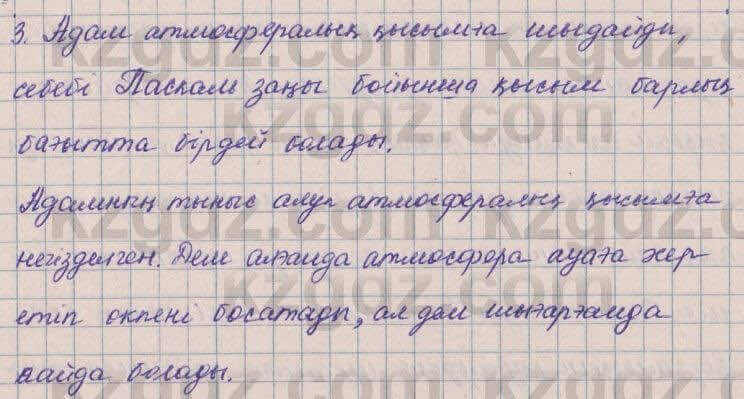 3. Адам атмосфералық қысымға шыдайды,
себебі Паскаль заңы бойынша қысым барлық
бағытта бірдей болады.
Адамның тыныс алуы атмосфералық қысымға
негізделген. Дем алғанда атмосфера ауаға жер
етіп өкпені босатады, ал дем шығарғанда
пайда болады.
kzgdz.com